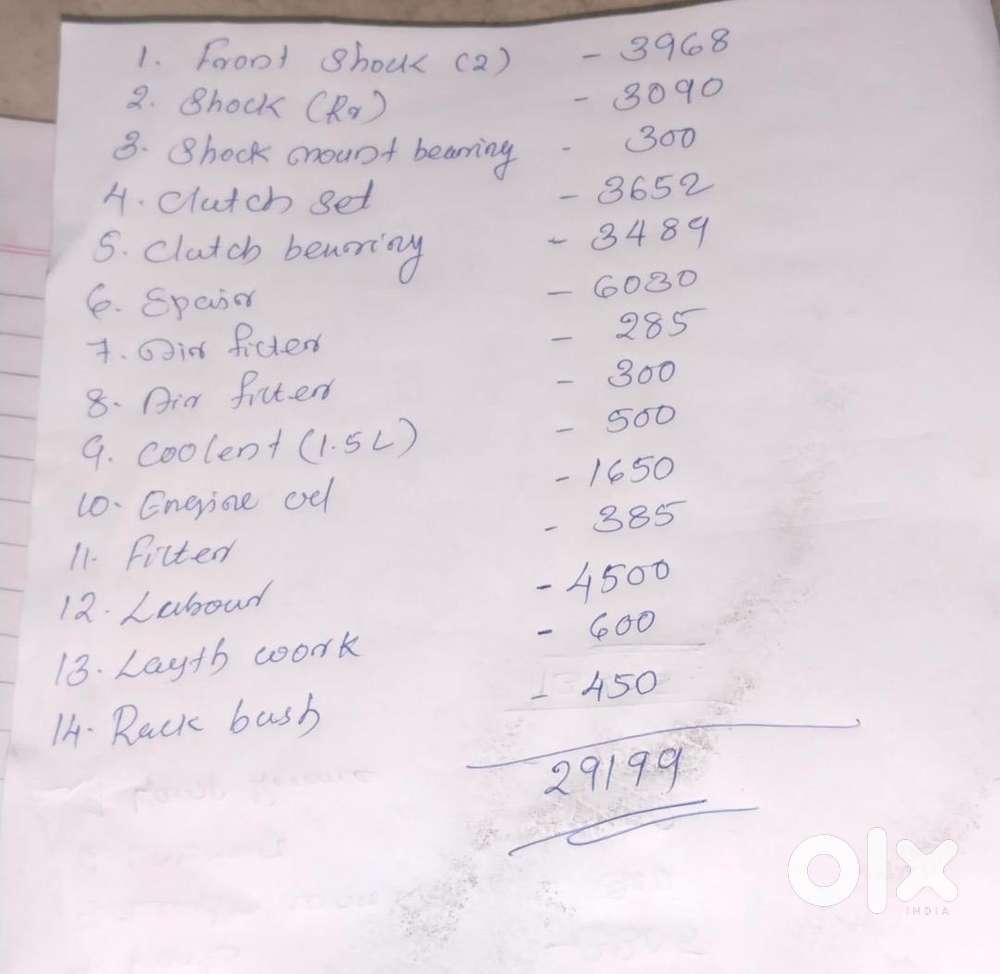 1. Front Shouk (2) - 3968
2. Shock (Rr) - 3090
3. Shock mount bearing - 300
4. Clutch Set - 3652
5. Clutch bearing - 3489
6. Spair - 6030
7. Air filter - 285
8. Air filter - 300
9. Coolent (1.5L) - 500
10. Engine oil - 1650
11. Filter - 385
12. Labour - 4500
13. Layth work - 600
14. Rack bush - 450
29199
olx
INDIA